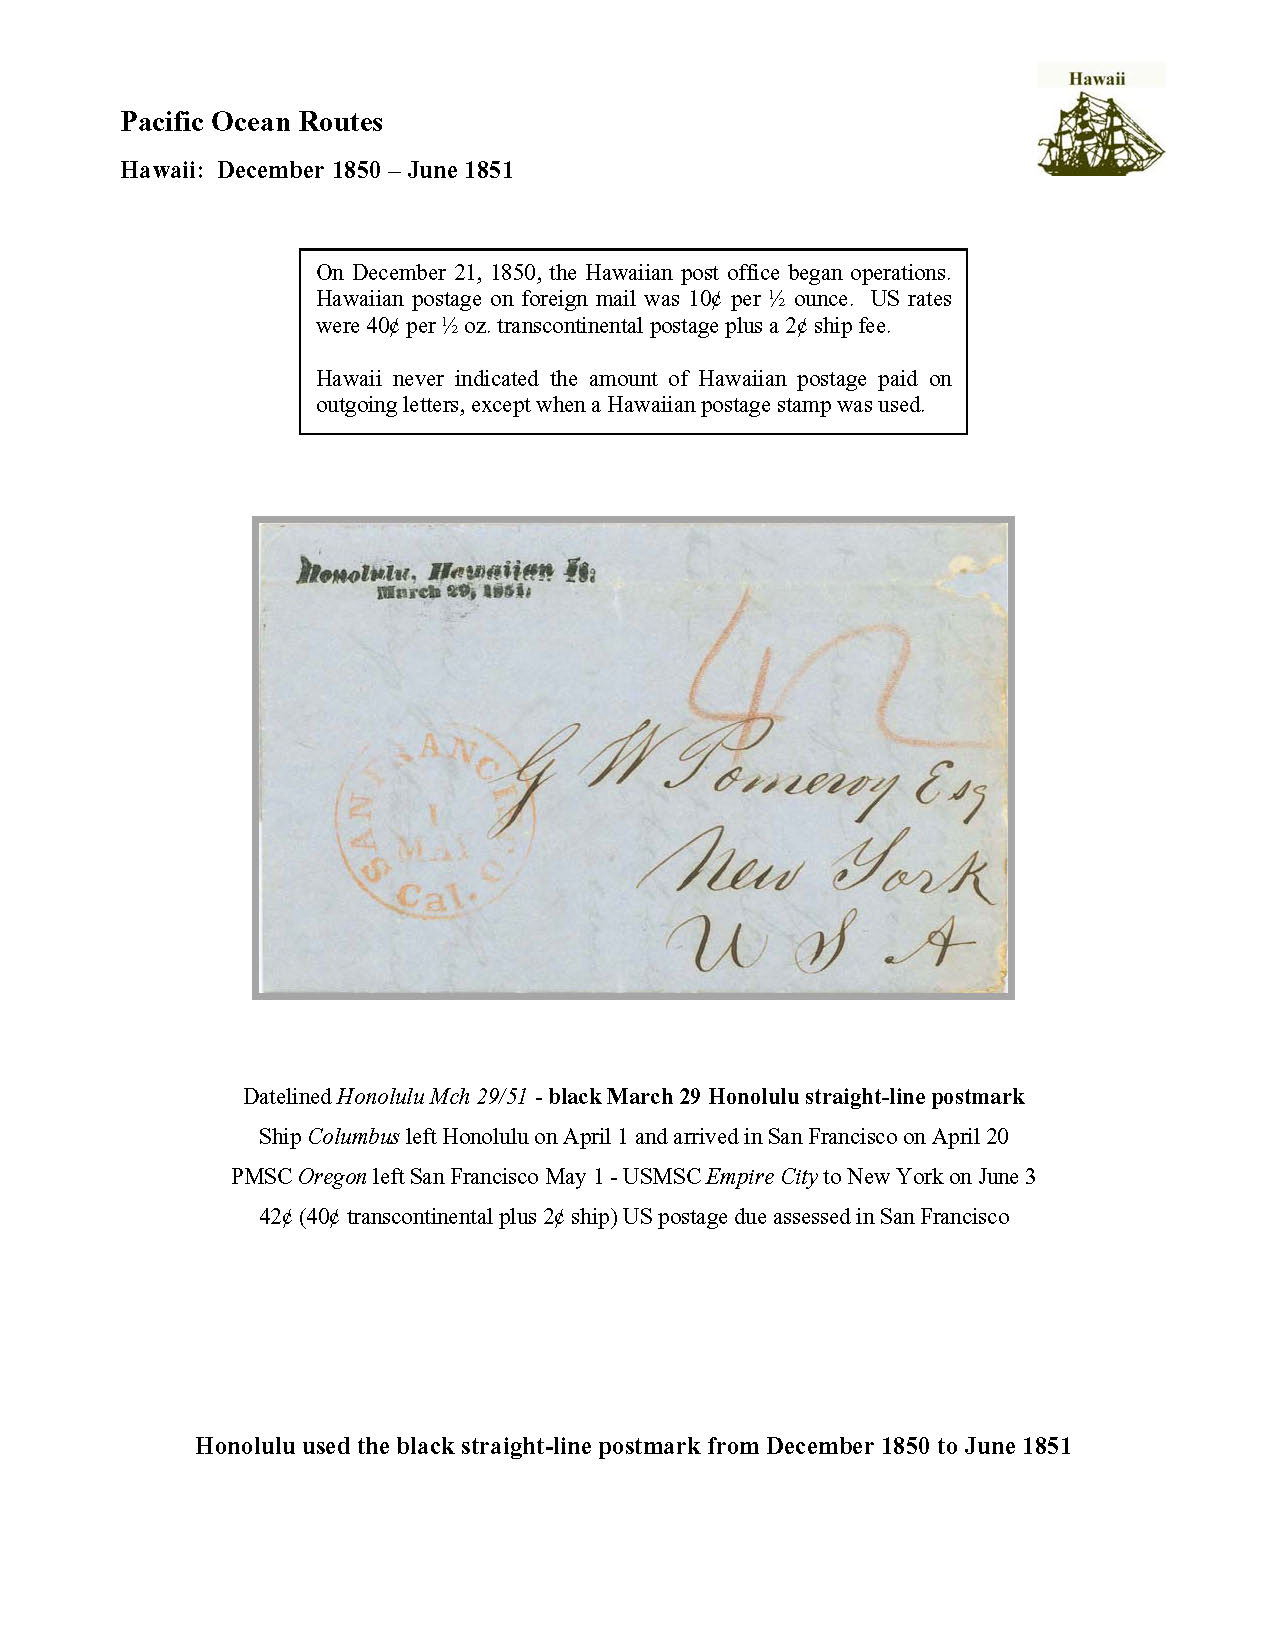 Hawaii
Pacific Ocean Routes
Hawaii: December 1850 – June 1851
On December 21, 1850, the Hawaiian post office began operations.
Hawaiian postage on foreign mail was 10¢ per ½ ounce. US rates
were 40¢ per ½ oz. transcontinental postage plus a 2¢ ship fee.
Hawaii never indicated the amount of Hawaiian postage paid on
outgoing letters, except when a Hawaiian postage stamp was used.
Honolulu, Hawaiian Is.
March 29, 1851.
42
SAN FRANCISCO
1
MAY
Cal.
G W Pomeroy Esq
New York
U S A
Datelined Honolulu Mch 29/51 - black March 29 Honolulu straight-line postmark
Ship Columbus left Honolulu on April 1 and arrived in San Francisco on April 20
PMSC Oregon left San Francisco May 1 - USMSC Empire City to New York on June 3
42¢ (40¢ transcontinental plus 2¢ ship) US postage due assessed in San Francisco
Honolulu used the black straight-line postmark from December 1850 to June 1851